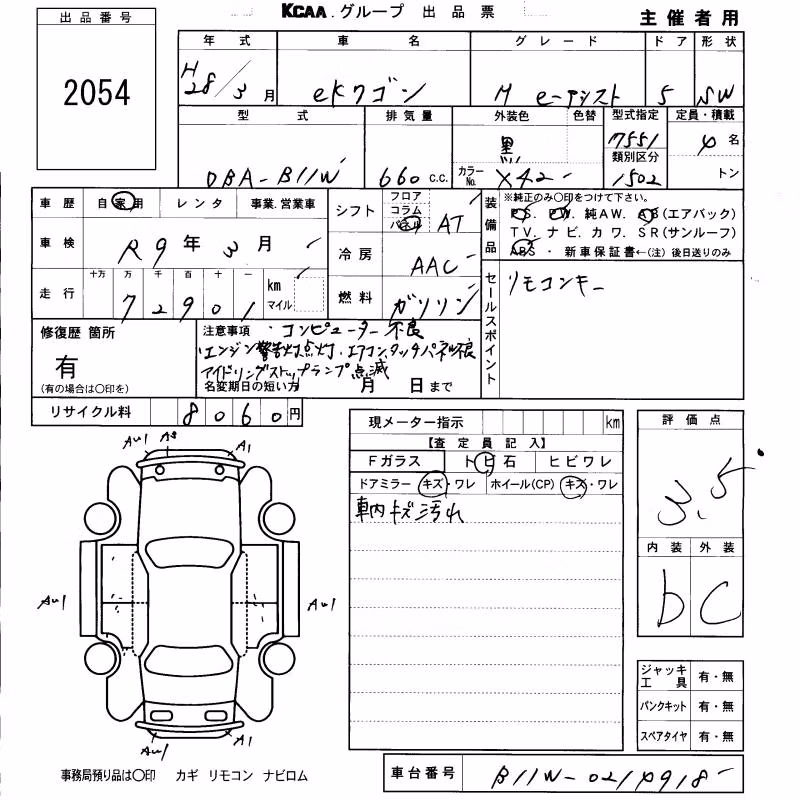 KCAA.グループ 出品票
主催者用
出品番号
2054
年式 車名 グレード ドア 形状
H28/3月 eKワゴン M e-アシスト 5 SW
型式 排気量 外装色 色替 型式指定 定員・積載
DBA-B11W 660 c.c. 黒 カラーNo. X42 17551 4名
類別区分
1502 トン
車歴 自家用 レンタ 事業.営業車
車検 R9年3月
走行 十万 万 千 百 十 一 km マイル
72901
シフト フロア コラム パネル AT
冷房 AAC
燃料 ガソリン
装備品 ※純正のみ○印をつけて下さい。
PS. PW. 純AW. AB(エアバック)
TV. ナビ. カワ. SR(サンルーフ)
ABS ・ 新車保証書←(注) 後日送りのみ
セールスポイント
リモコンキー
修復歴 箇所
有
(有の場合は○印を)
注意事項 ・コンピューター不良
エンジン警告灯点灯、エアコンタッチパネル不良
アイドリングストップランプ点滅
名変期日の短い方 月 日まで
リサイクル料 8060円
現メーター指示 km
【査定員記入】
Fガラス トビ石 ヒビワレ
ドアミラー キズ・ワレ ホイール(CP) キズ・ワレ
車内キズ汚れ
評価点
3.5
内装 外装
b C
AW1 A3 A1
AW1 AW1
AW1 A1
ジャッキ工具 有・無
パンクキット 有・無
スペアタイヤ 有・無
事務局預り品は○印 カギ リモコン ナビロム
車台番号 B11W-0210918